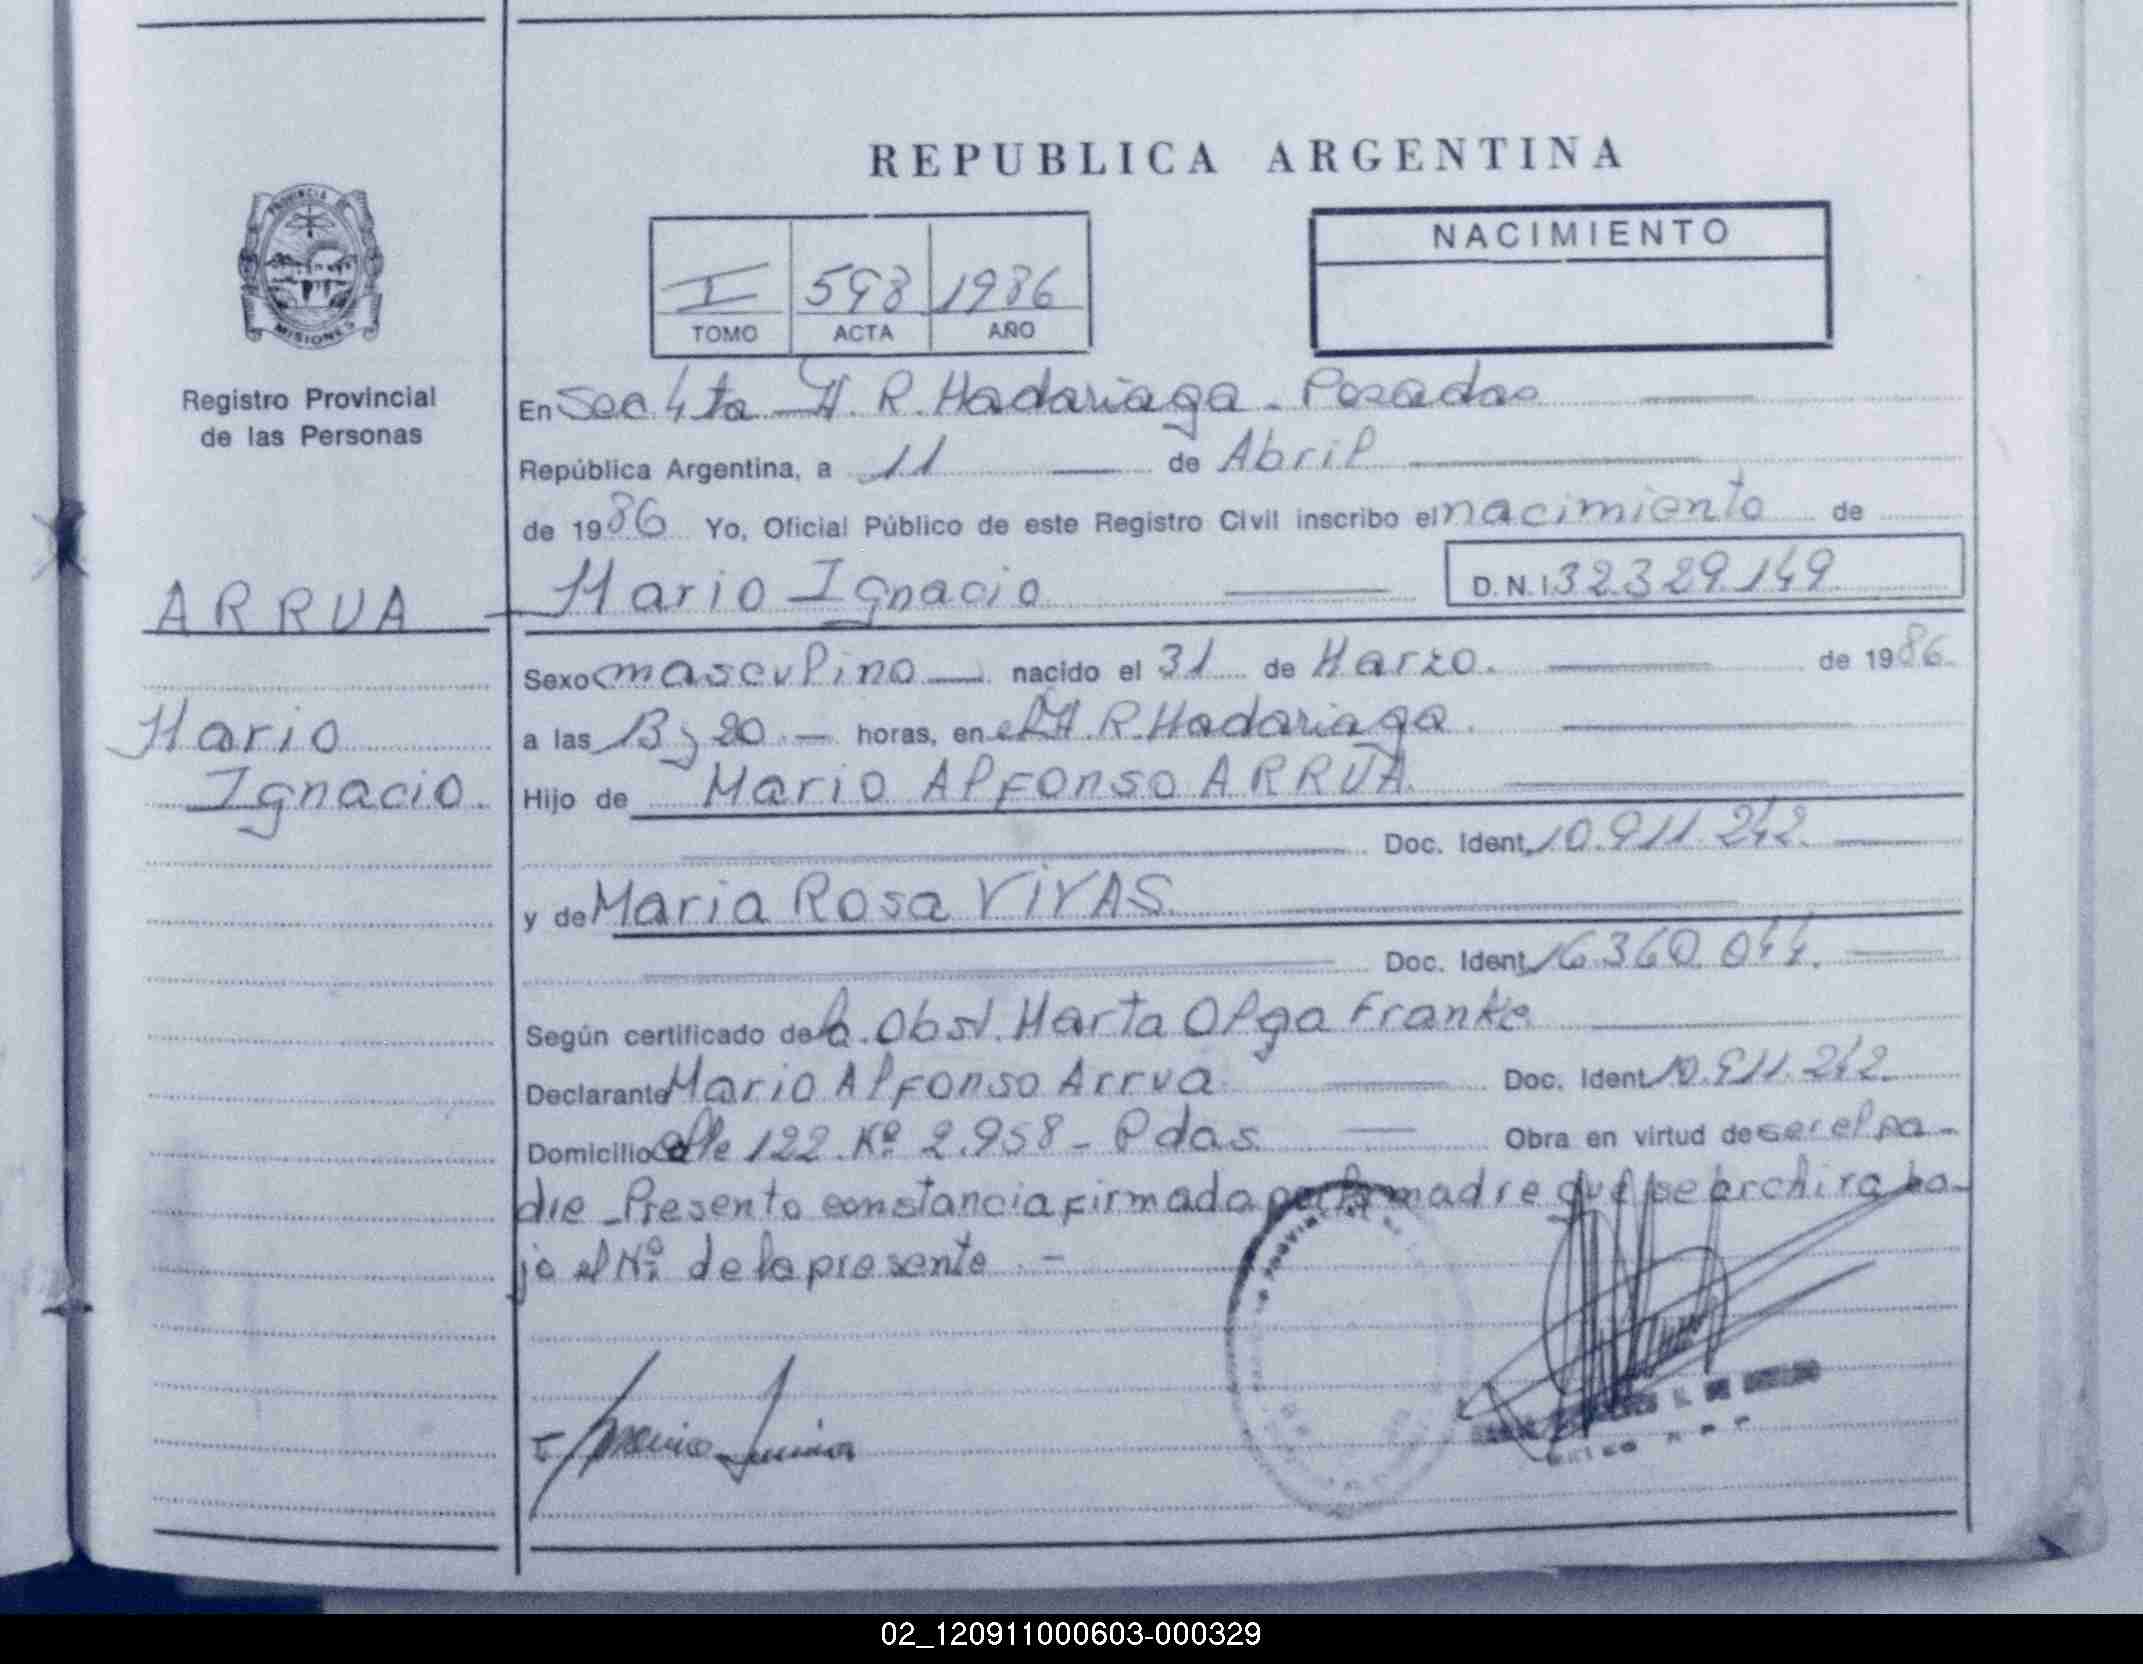 REPUBLICA ARGENTINA
PROVINCIA DE
MISIONES
Registro Provincial
de las Personas
I 598 1986
TOMO ACTA AÑO
NACIMIENTO
En Sec 4ta H. R. Madariaga - Posadas
República Argentina, a 11 de Abril
de 1986 Yo, Oficial Público de este Registro Civil inscribo el nacimiento de
ARRUA - Mario Ignacio D.N.I 32.329.149
Sexo masculino nacido el 31 de Marzo. de 1986.
Mario
Ignacio.
a las 13 y 20 horas, en el H. R. Madariaga.
Hijo de Mario Alfonso ARRUA.
Doc. Ident. 10.911.242.
y de Maria Rosa VIVAS
Doc. Ident. 16.360.044.
Según certificado de la Obst. Marta Olga Franke
Declarante Mario Alfonso Arrua Doc. Ident. 10.911.242.
Domicilio calle 122 Nº 2.958 - Pdas. Obra en virtud de ser el pa-
dre - Presento constancia firmada por la madre que se archiva ba-
jo el Nº de la presente -
02_120911000603-000329